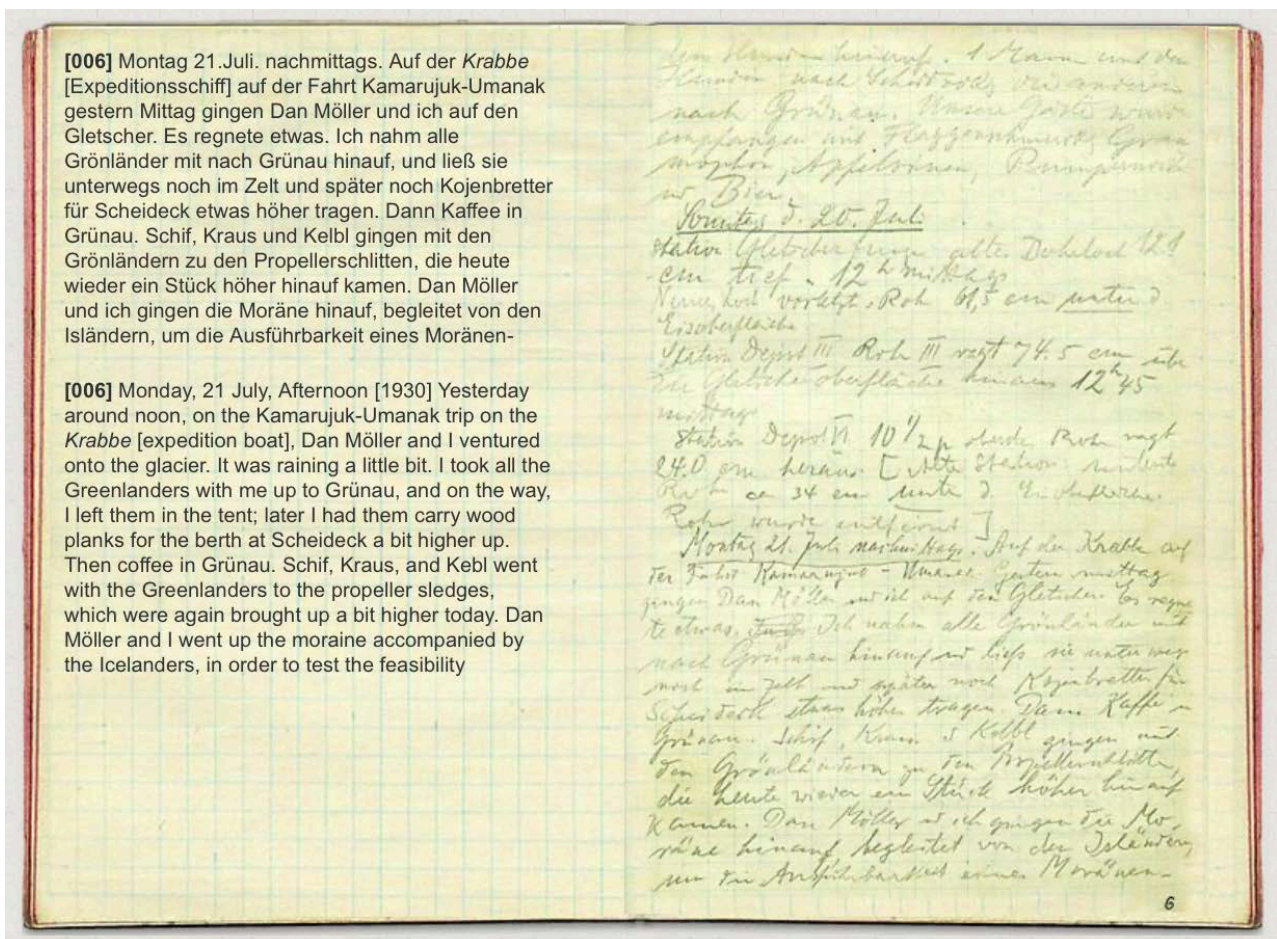 [006] Montag 21.Juli. nachmittags. Auf der Krabbe
[Expeditionsschiff] auf der Fahrt Kamarujuk-Umanak
gestern Mittag gingen Dan Möller und ich auf den
Gletscher. Es regnete etwas. Ich nahm alle
Grönländer mit nach Grünau hinauf, und ließ sie
unterwegs noch im Zelt und später noch Kojenbretter
für Scheideck etwas höher tragen. Dann Kaffee in
Grünau. Schif, Kraus und Kelbl gingen mit den
Grönländern zu den Propellerschlitten, die heute
wieder ein Stück höher hinauf kamen. Dan Möller
und ich gingen die Moräne hinauf, begleitet von den
Isländern, um die Ausführbarkeit eines Moränen-
[006] Monday, 21 July, Afternoon [1930] Yesterday
around noon, on the Kamarujuk-Umanak trip on the
Krabbe [expedition boat], Dan Möller and I ventured
onto the glacier. It was raining a little bit. I took all the
Greenlanders with me up to Grünau, and on the way,
I left them in the tent; later I had them carry wood
planks for the berth at Scheideck a bit higher up.
Then coffee in Grünau. Schif, Kraus, and Kebl went
with the Greenlanders to the propeller sledges,
which were again brought up a bit higher today. Dan
Möller and I went up the moraine accompanied by
the Icelanders, in order to test the feasibility
hinauf. 1 Mann und den
Hunden nach Scheideck, die anderen
nach Grünau. Unsere Gäste wurden
empfangen mit Flaggenschmuck, Gram
mophon, Apfelsinen, Pumpernick
u Bier.
Sonntag d. 20. Juli
Station Gletscher altes Bohrloch 128
cm tief. 12 h mittags
Neues Loch verletzt. Rohr 61,5 cm unter d
Eisoberfläche
Station Depot III Rohr III ragt 74.5 cm übe
die Gletscheroberfläche hinaus 12 h 45
mittags
Station Depot VI 10 1/2 p Rohr ragt
24.0 cm heraus [Alte Station:
Rohr ca 34 cm unter d. Eisoberfläche.
Rohr wurde entfernt]
Montag 21. Juli nachmittags. Auf der Krabbe auf
der Fahrt Kamarujuk - Umanak Gestern mittag
gingen Dan Möller und ich auf den Gletscher. Es regne
te etwas. Ich nahm alle Grönländer mit
nach Grünau hinauf und liess sie unterwegs
noch im Zelt und später noch Kojenbretter für
Scheideck etwas höher tragen. Dann Kaffee in
Grünau. Schif, Kraus u Kelbl gingen mit
den Grönländern zu den Propellerschlitten,
die heute wieder ein Stück höher hinauf
kamen. Dan Möller u ich gingen die Mo-
räne hinauf, begleitet von den Isländern,
um die Ausführbarkeit eines Moränen-
6